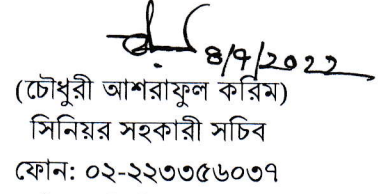 ৪/৭/২০২২
(চৌধুরী আশরাফুল করিম)
সিনিয়র সহকারী সচিব
ফোন: ০২-২২৩৩৫৬০৩৭